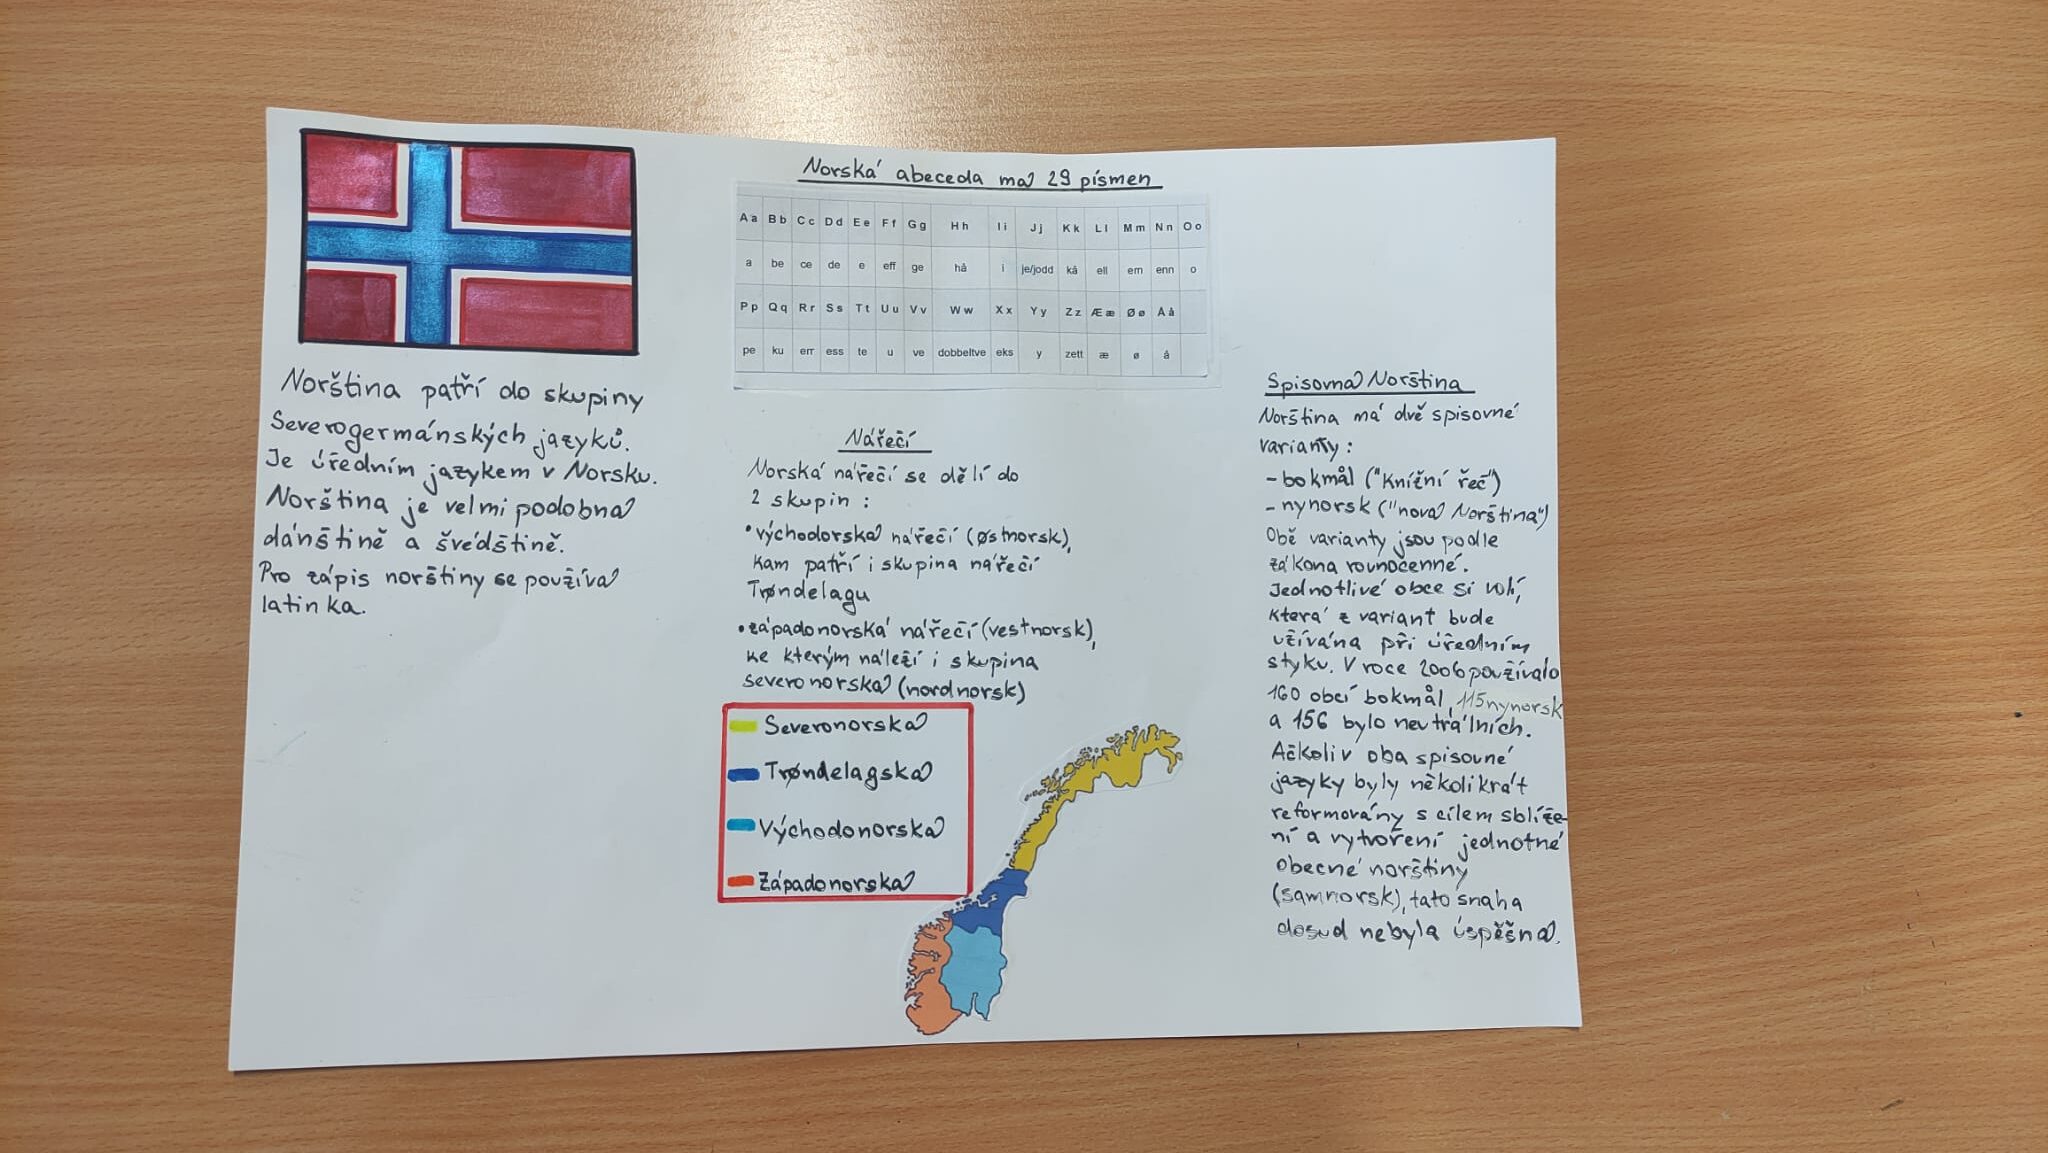 Norština patří do skupiny
Severogermánských jazyků.
Je úředním jazykem v Norsku.
Norština je velmi podobná
dánštině a švédštině.
Pro zápis norštiny se používá
latinka.
Norská abeceda má 29 písmen
A a B b C c D d E e F f G g H h I i J j K k L l M m N n O o
a be ce de e eff ge hå i je/jodd kå ell em enn o
P p Q q R r S s T t U u V v W w X x Y y Z z Æ æ Ø ø Å å
pe ku err ess te u ve dobbeltve eks y zett æ ø å
Nářečí
Norská nářečí se dělí do
2 skupin :
• východorská nářečí (østnorsk),
kam patří i skupina nářečí
Trøndelagu
• západonorská nářečí (vestnorsk),
ke kterým náleží i skupina
severonorská (nordnorsk)
Severonorská
Trøndelagská
Východonorská
Západonorská
Spisovná Norština
Norština má dvě spisovné
varianty :
- bokmål ("Knížní řeč")
- nynorsk ("nová Norština")
Obě varianty jsou podle
zákona rovnocenné.
Jednotlivé obce si volí,
která z variant bude
užívána při úředním
styku. V roce 2006 používalo
160 obcí bokmål, 115 nynorsk
a 156 bylo neutrálních.
Ačkoliv oba spisovné
jazyky byly několikrát
reformovány s cílem sblíže-
ní a vytvoření jednotné
obecné norštiny
(samnorsk), tato snaha
dosud nebyla úspěšná.